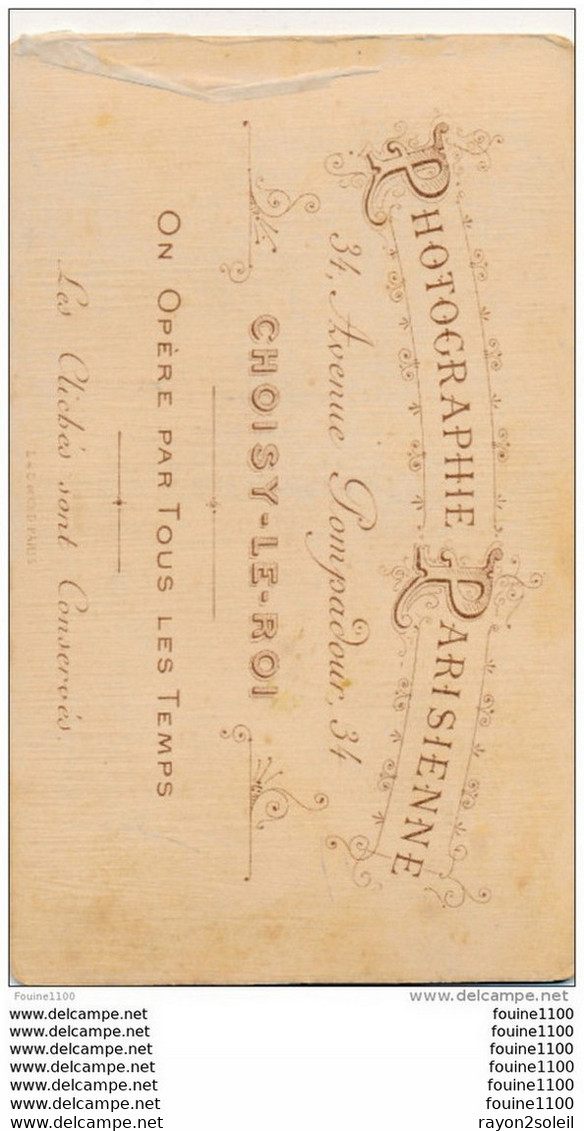 PHOTOGRAPHIE PARISIENNE
34, Avenue Pompadour, 34
CHOISY-LE-ROI
ON OPÈRE PAR TOUS LES TEMPS
Les Clichés sont Conservés.
Fouine1100
www.delcampe.net
www.delcampe.net fouine1100
www.delcampe.net fouine1100
www.delcampe.net fouine1100
www.delcampe.net fouine1100
www.delcampe.net fouine1100
www.delcampe.net fouine1100
www.delcampe.net rayon2soleil